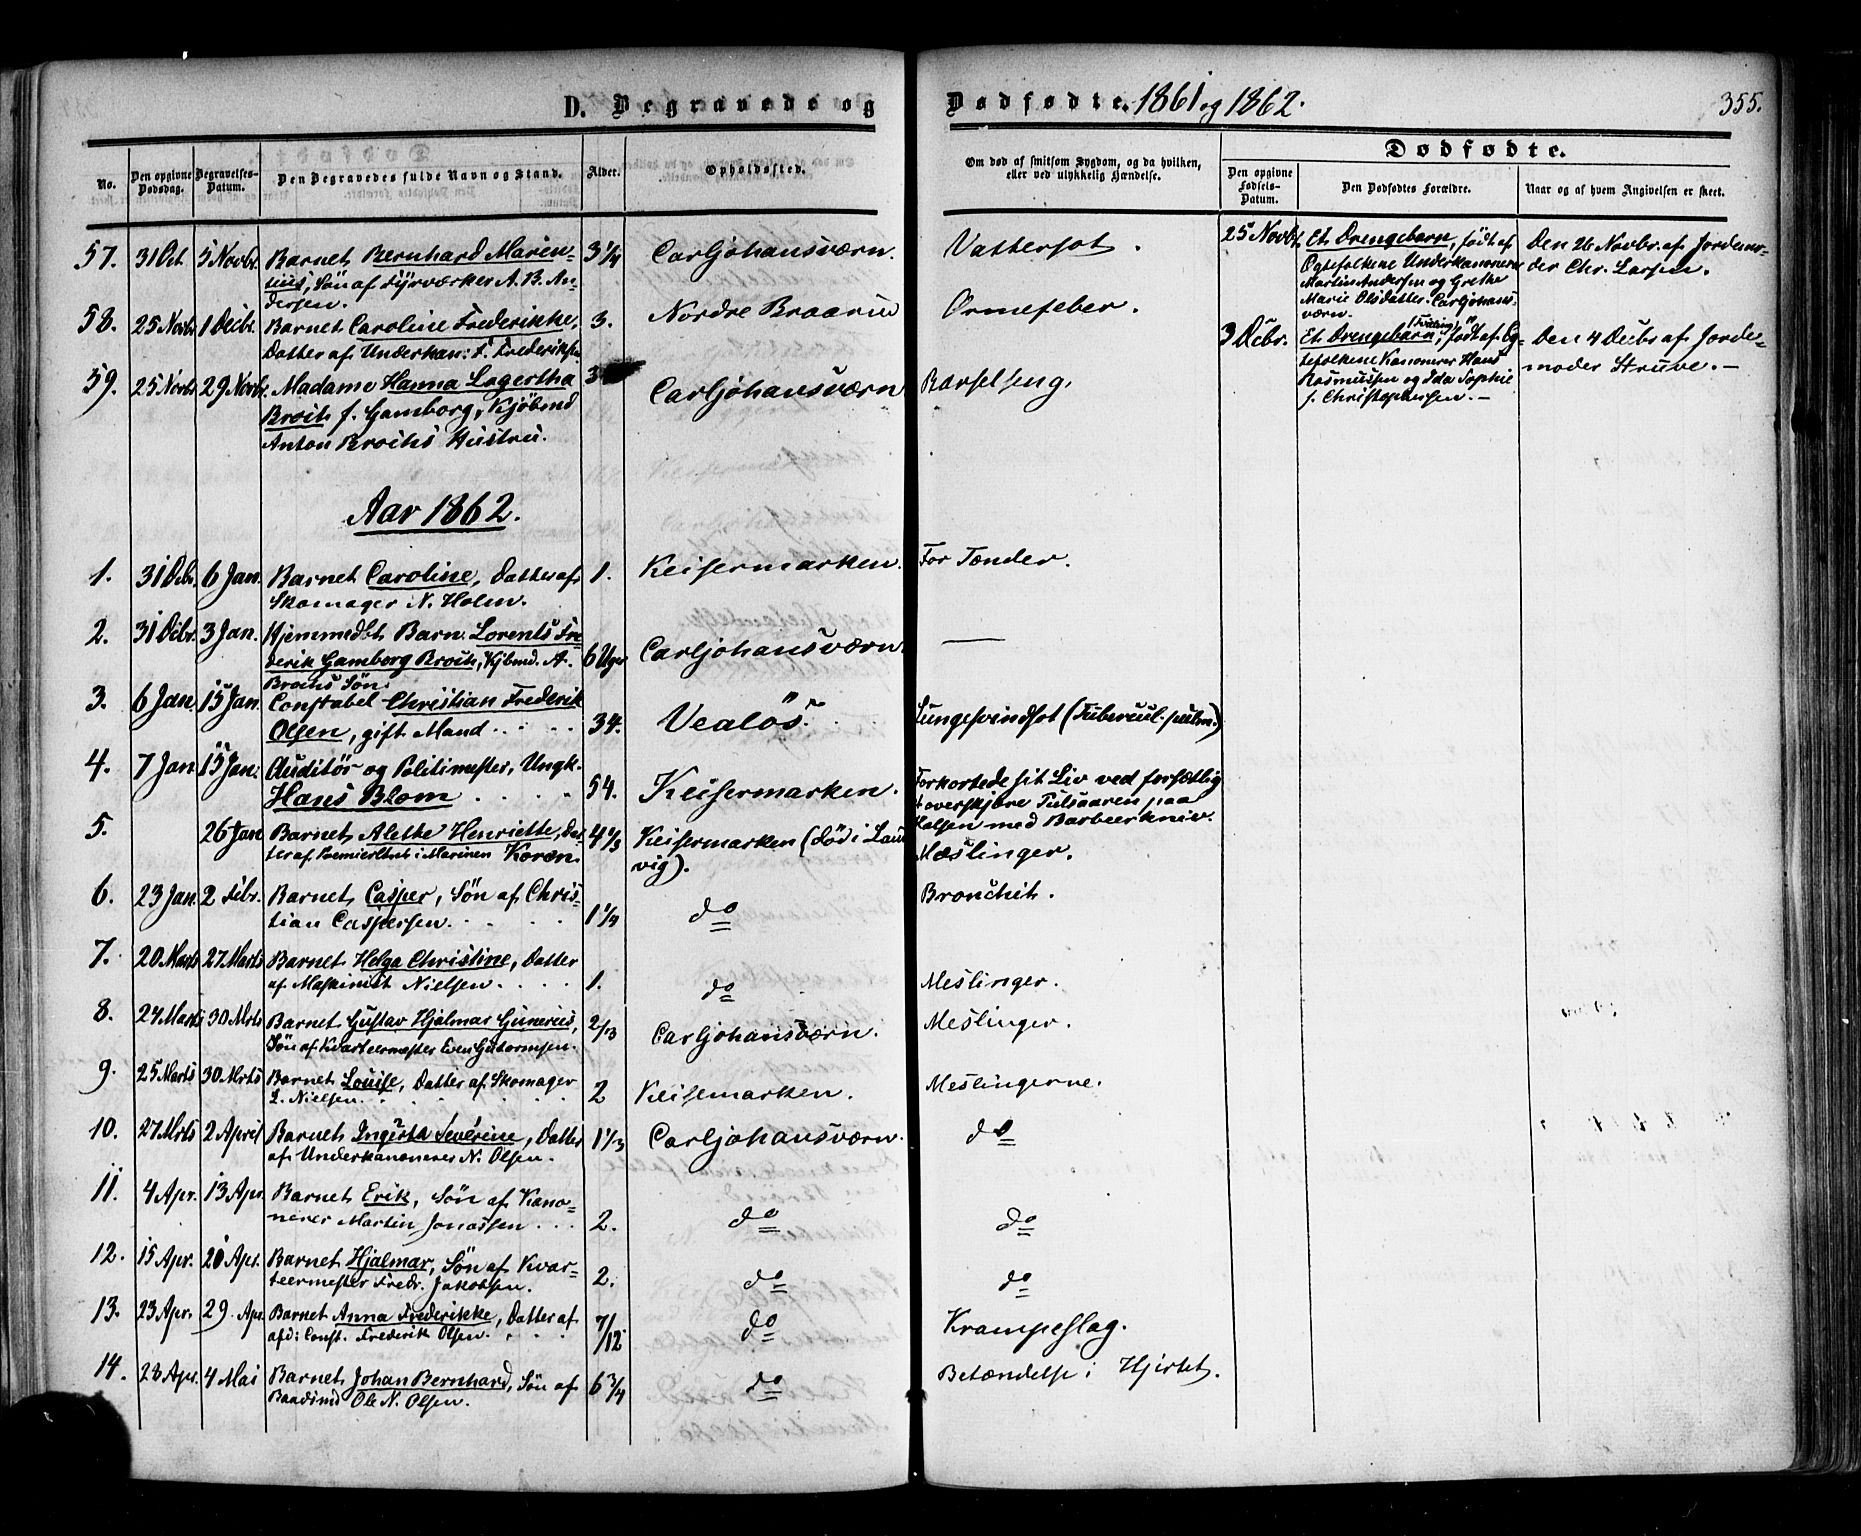 D. Begravede og Dødfødte. 1861 og 1862. 355.
No. Den opgivne Dødsdag. Begravelses-Datum. Den Begravedes fulde Navn og Stand. Alder. Opholdssted. Om død af smitsom Sygdom, og da hvilken, eller ved ulykkelig Hændelse.
Dødfødte.
Den opgivne Fødsels-Datum. Den Dødfødtes Forældre. Naar og af hvem Angivelsen er skeet.
57. 31 Oct. 5 Novbr. Barnet Bernhard Marin-
tius, Søn af Fyrværker A. B. An-
dersen. 3 1/4 Carljohansværn. Vattersot.
25 Novbr. Et Drengebarn, født af
Ægtefolkene Underkanoneer
Martin Andersen og Grethe
Marie Olsdatter. Carljohans-
værn.
Den 26 Novbr. af Jordemo-
der Chr. Larsen.
58. 25 Novbr. 1 Decbr. Barnet Caroline Frederikke,
Datter af Underkan: F. Frederiksen 3. Nordre Braarud Ormefeber.
3 Decbr. Et Drengebarn (Tvilling), født af Æg-
tefolkene Kanoneer Hans
Rasmussen og Ida Sophie
f. Christophersen. —
Den 4 Decbr af Jorde-
moder Struve. —
59. 25 Novbr 29 Novbr. Madame Hanna Lagertha
Broch f. Gamborg, Kjøbmd
Anton Brochs Hustru. Carljohansværn Barselseng.
Aar 1862.
1. 31 Decbr. 6 Jan. Barnet Caroline, Datter af
Skomager N. Holm. 1. Keisermarken. For Tænder.
2. 31 Decbr. 3 Jan. Hjemmedbt Barn Lorents Fre-
derik Gamborg Broch, Kjbmd. A.
Brochs Søn. 6 Uger Carljohansværn. —
3. 6 Jan. 15 Jan. Constabel Christian Frederik
Olsen, gift Mand 34. Vealøs. Lungesvindsot (Tubercul. pulm.)
4. 7 Jan 15 Jan. Auditør og Politimester, Ungk.
Hans Blom 54. Keisermarken. Forkortede sit Liv ved forsætlig
t overskjære Pulsaaren paa
Halsen med Barbeerkniv.
5. 26 Jan Barnet Alethe Henriette, Dat-
ter af Premierltnt i Marinen Koren. 4 1/3 Keisermarken (død i Laur-
vig). Mæslinger.
6. 23 Jan. 2 Febr. Barnet Casper, Søn af Chris-
tian Caspersen. 1 1/4 do Bronchit.
7. 20 Marts 27 Marts Barnet Helga Christine, Datter
af Maskinist Nielsen. 1. do Meslinger.
8. 24 Marts 30 Mrts Barnet Gustav Hjalmar Gunerius,
Søn af Kvarteermester Even Guttormsen. 2/3 Carljohansværn. Meslinger.
9. 25 Marts 30 Mrts Barnet Louise, Datter af Skomager
L. Nielsen. 2 Keisemarken. Meslingerne.
10. 27 Mrts 2 April Barnet Ingista Severine, Datter
af Underkanoneer N. Olsen. 1 1/3 Carljohansværn. do
11. 4 Apr. 13 Apr. Barnet Erik, Søn af Kano-
neer Martin Jonassen 2. do do
12. 15 Apr. 20 Apr. Barnet Hjalmar, Søn af Kvar-
teermester Fredr. Jakobsen. 2. do do
13. 23 Apr. 29 Apr. Barnet Anna Frederikke, Datter af
afd: Const. Frederik Olsen. 7/12 do Krampeslag.
14. 28 Apr. 4 Mai Barnet Johan Bernhard, Søn af
Baadsmd Ole N. Olsen. 6 3/4 do Betændelse i Hjertet.